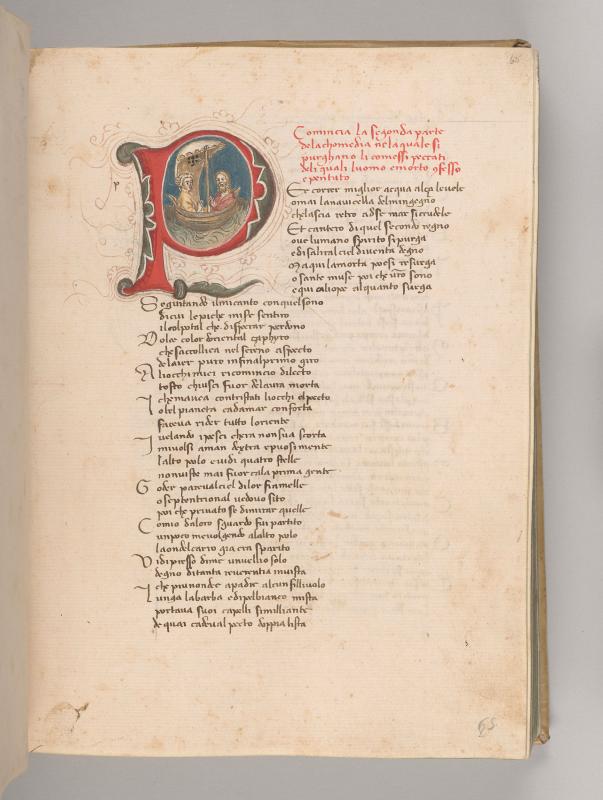 65
Comincia la segonda parte
delachomedia nelaquale si
purghano li comessi peccati
deli quali luomo emorto 9fesso
epentuto
P
Er correr miglior acqua alça levele
omai lanavicella delmingegno
chelascia retro adse mar sicrudele
Et cantero di quel secondo regno
ove lumano spirito sipurga
edisalir alciel diventa degno
Ma qui lamorta poesi resurga
o sante muse poi che vro sono
e qui caliope alquanto surga
Seguitando ilmicanto conquelsono
dicui lepiche mise sentiro
ilcolpo tal che disperar perdono
Dolce color doriental çaphyro
chesaccollica nel sereno aspecto
delaier puro infinalprimo giro
Aliocchi miei ricomincio dilecto
tosto chiusci fuor delaura morta
ichemavea contristati liocchi elpecto
Lobelpianeta cadamar conforta
faceva rider tutto loriente
Ivelando ipesci chera nonsua scorta
imivolsi aman dextra epuosi mente
laltro polo evidi quatro stelle
nonviste mai fuor cala prima gente
Goder pareval ciel dilor fiamelle
o septentrional vedovo sito
poi che privato se dimirar quelle
Comio daloro sguardo fui partito
unpoco mevolgendo alaltro polo
laondelcarro gia era sparito
Vidi presso dime unvelio solo
degno ditanta reverentia invista
che piu non de apadre alcun fillivolo
Lunga labarba edipelbianco mista
portava suoi capelli simillianti
de quai cadeval pecto doppia lista
65